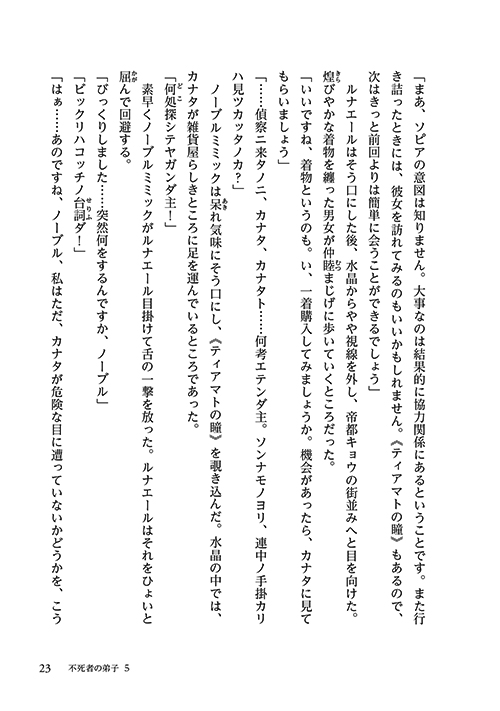 「まあ、ソピアの意図は知りません。大事なのは結果的に協力関係にあるということです。また行
き詰ったときには、彼女を訪れてみるのもいいかもしれません。《ティアマトの瞳》もあるので、
次はきっと前回よりは簡単に会うことができるでしょう」
ルナエールはそう口にした後、水晶からやや視線を外し、帝都キョウの街並みへと目を向けた。
煌びやかな着物を纏った男女が仲睦まじげに歩いていくところだった。
「いいですね、着物というのも。い、一着購入してみましょうか。機会があったら、カナタに見て
もらいましょう」
「……偵察ニ来タノニ、カナタ、カナタト……何考エテンダ主。ソンナモノヨリ、連中ノ手掛カリ
ハ見ツカッタノカ？」
ノーブルミミックは呆れ気味にそう口にし、《ティアマトの瞳》を覗き込んだ。水晶の中では、
カナタが雑貨屋らしきところに足を運んでいるところであった。
「何処探シテヤガンダ主！」
素早くノーブルミミックがルナエール目掛けて舌の一撃を放った。ルナエールはそれをひょいと
屈んで回避する。
「びっくりしました……突然何をするんですか、ノーブル」
「ビックリハコッチノ台詞ダ！」
「はぁ……あのですね、ノーブル、私はただ、カナタが危険な目に遭っていないかどうかを、こう
23 不死者の弟子 5